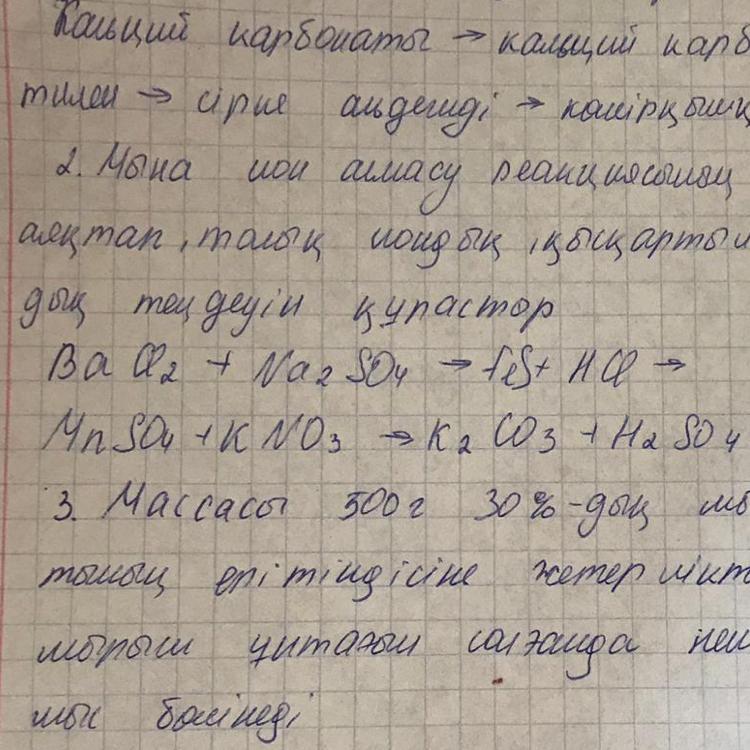 Кальций карбонаты → кальций карб
тилен → сірке альдегиді → көмірқышқ
2. Мына ион алмасу реакциясының
аяқтап, толық иондық, қысқартыл
дық теңдеуін құрастыр
BaCl2 + Na2SO4 → FeS + HCl →
MnSO4 + KNO3 → K2CO3 + H2SO4
3. Массасы 500г 30%-дық мы
тының ерітіндісіне жетерлікт
мырыш ұнтағын салғанда неш
мыс бөлінеді